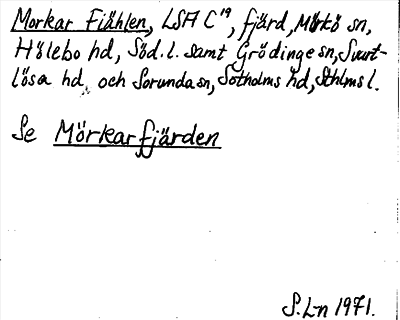 Morkar Fiählen, LSA C¹⁹, fjärd, Mörkö sn,
Hölebo hd, Söd. l. samt Grödinge sn, Svart-
lösa hd, och Sorunda sn, Sotholms hd, Sthlms l.
Se Mörkarfjärden
S. L-n 1971.